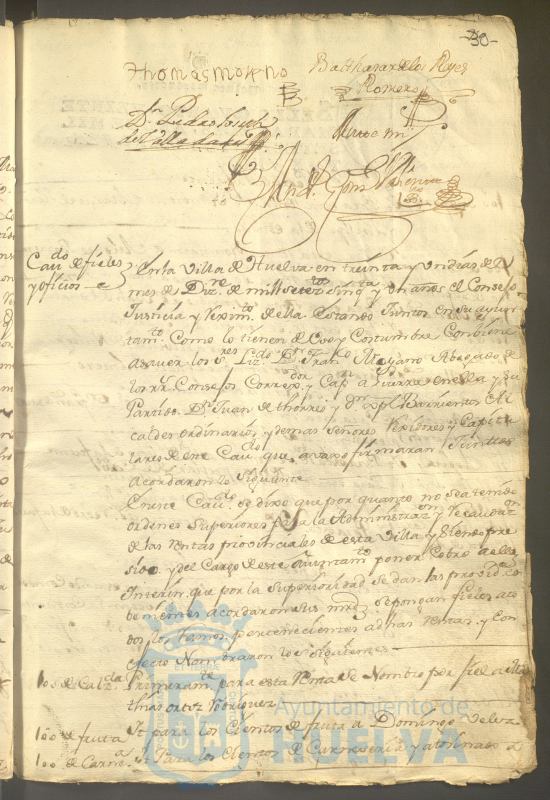 30
Thomas Moreno Balthasar de los Reyes
Romero
Dn Pedro Joseph
de Valladares
Ante mi
Cavdo de fieles
y oficios
En la Villa de Huelva en treinta y un dias del
mes de Dize de mill setetos sinqta y un años el Consejo
Justicia y Reximto de ella estando Juntos en su ayun
tamto Como lo tienen de Uso y Costumbre Combiene
a saver los Sres Lizdo Dn Franco Abogado de
los Rs Consejos Correxor y Capn a Guerra en ella y su
Partido Dn Juan de thorres y Dn Barrientos Al
caldes ordinarios, y demas Señores Rexidores y Capitu
lares de este Cavdo que avaxo firmaran Juntos
Acordaron lo Siguiente
En este Cavdo se dixo que por quanto no se a tenido
ordenes Superiores para la Administrazon y Recaudazon
de las Rentas provinciales de esta Villa y Siendo pre
siso y del Cargo de este Ayuntamto poner Cobro a ellas
Interin que por la Superioridad se dan las providas
acordaron sus mrds se pongan fieles
los Ramos pertenecientes a dhas Rentas, y con
efecto Nombraron los Siguientes
Primeramte para esta Renta se Nombro por fiel a
thias Rodriguez
100 de fruta
Yt para los Cientos de fruta a Domingo de Vera
100 de Carne
Yt Para los Cientos de Carneseria y a
Ayuntamiento de
HUELVA